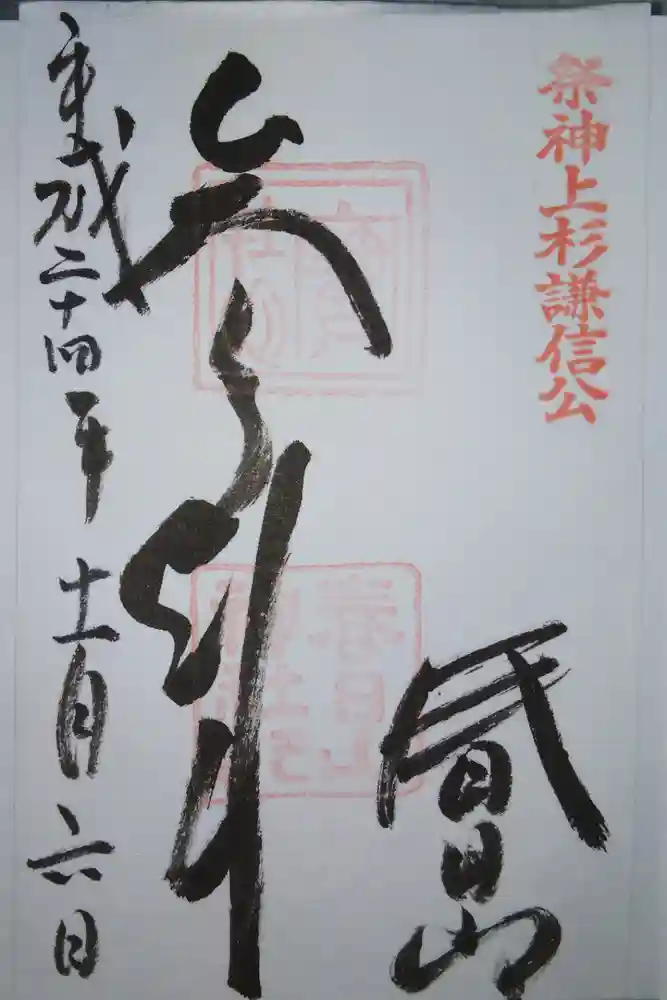 祭神上杉謙信公
春日山
参拝
平成二十四年十一月六日
春日山